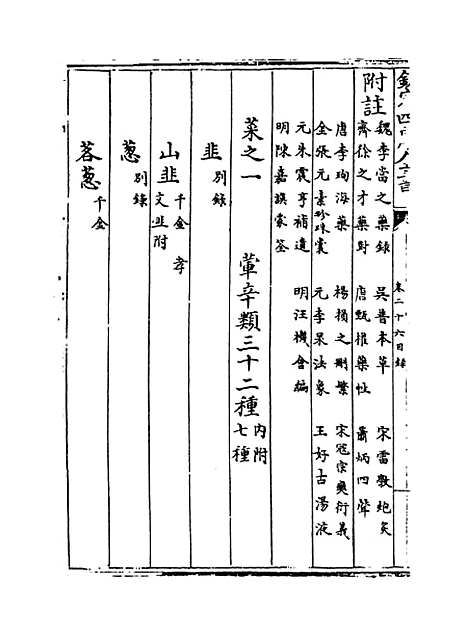 欽定四庫全書
卷二十六目錄
附註
魏李當之藥錄 吳普本草 宋雷斆炮炙
齊徐之才藥對 唐甄權藥性 蕭炳四聲
唐李珣海藥 楊損之刪繁 宋寇宗奭衍義
金張元素珍珠囊 元李杲法象 王好古湯液
元朱震亨補遺 明汪機會編
明陳嘉謨蒙筌
菜之一 葷辛類三十二種 內附七種
韭 別錄
山韭 千金 孝文韭附
蔥 別錄
茖蔥 千金